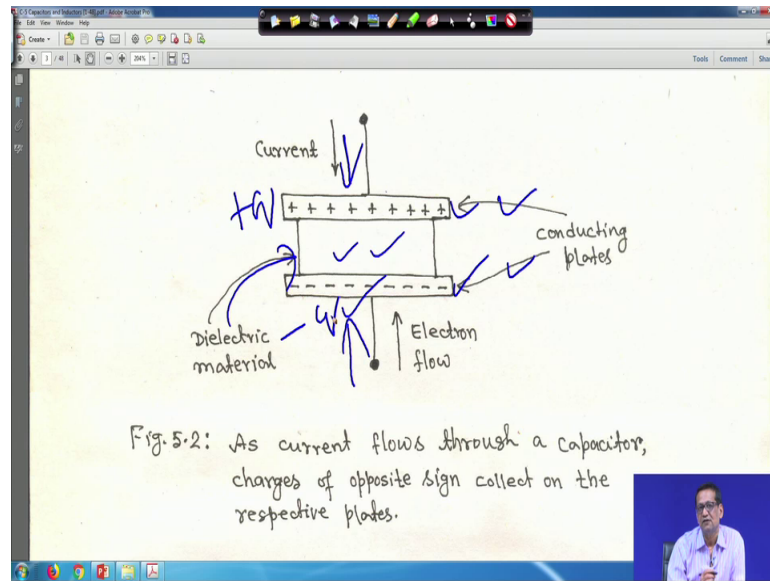 C-5 Capacitors and Inductors (1-48).pdf - Adobe Acrobat Pro
File Edit View Window Help
Create
3 / 48 204% Tools Comment Share
Current
+q
+ + + + + + + + +
conducting
plates
- - - - - - - - -
- q
Dielectric
material
Electron
flow
Fig. 5.2: As current flows through a capacitor,
charges of opposite sign collect on the
respective plates.